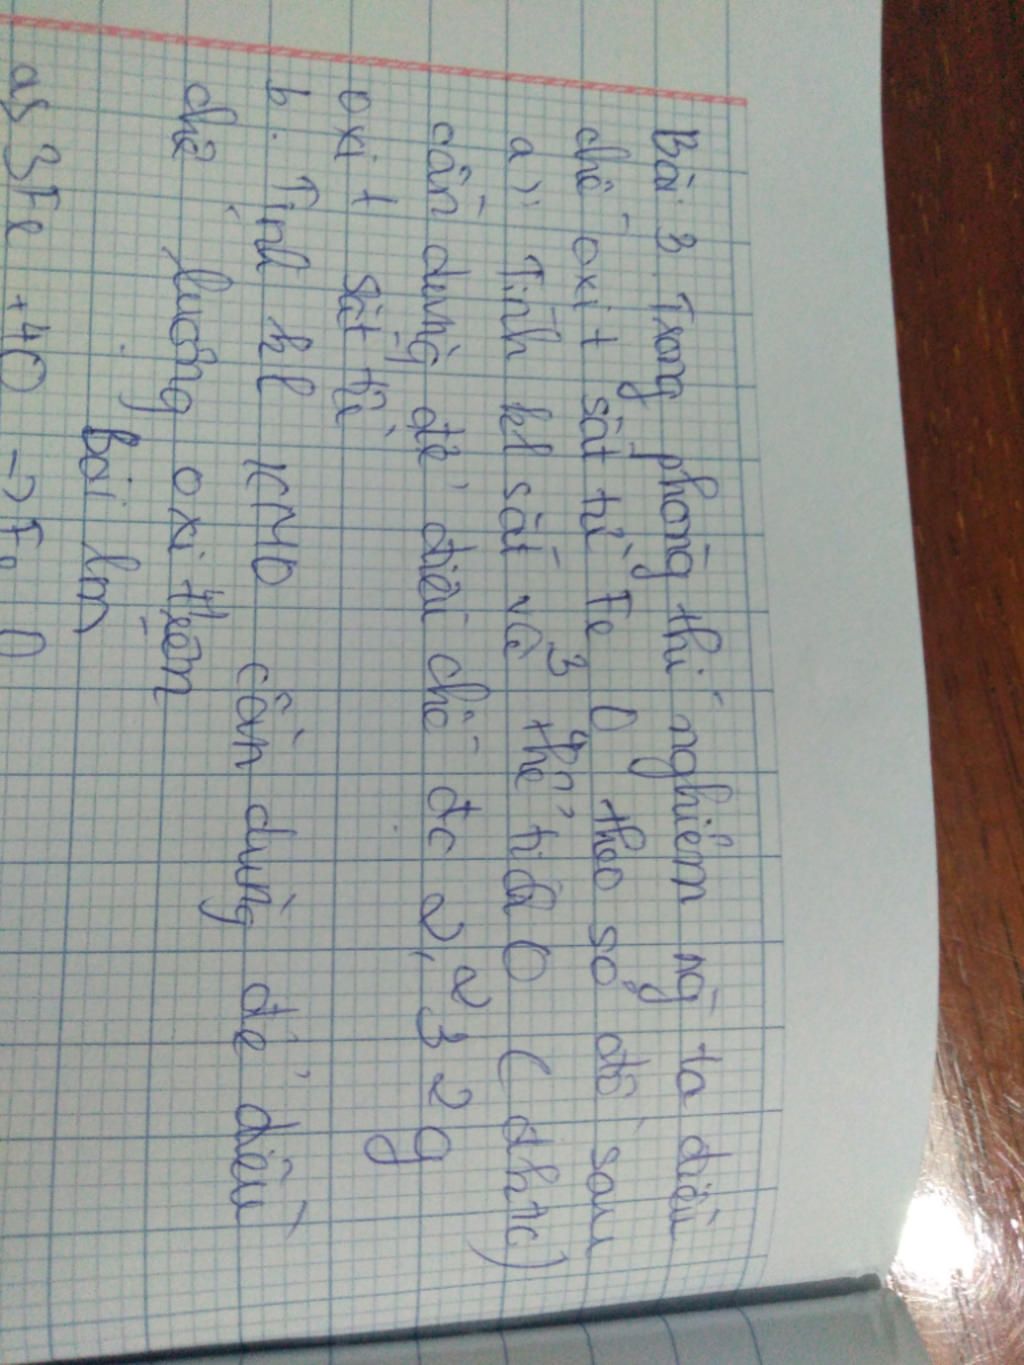 Bài 3. Trong phòng thí nghiệm ng ta điều
chế oxi t sắt từ Fe3O4 theo sơ đồ sau
a) Tính kl sắt và thể tích O2 (đktc)
cần dùng để điều chế đc 2,32g
oxi t sắt từ
b. Tính kl KMO cần dùng để điều
chế lượng oxi trên
bài làm
a, 3Fe + 4O → Fe O